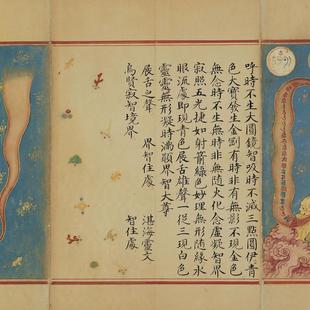 呼時不生大圓鏡智吸時不滅三點圓伊青
色大寶發生金剛有時非有無影不現金色
無念時不生無時非無隨水化念虛凝智界
寂照五光捷如射箭綠色妙理無形隨緣水
眼流處即現青色展舌雄聲一從三現白色
靈靈無形凝時滿顯界智大尊
展舌之聲 界智住處 湛海靈文
烏賢寂智境界 智住處